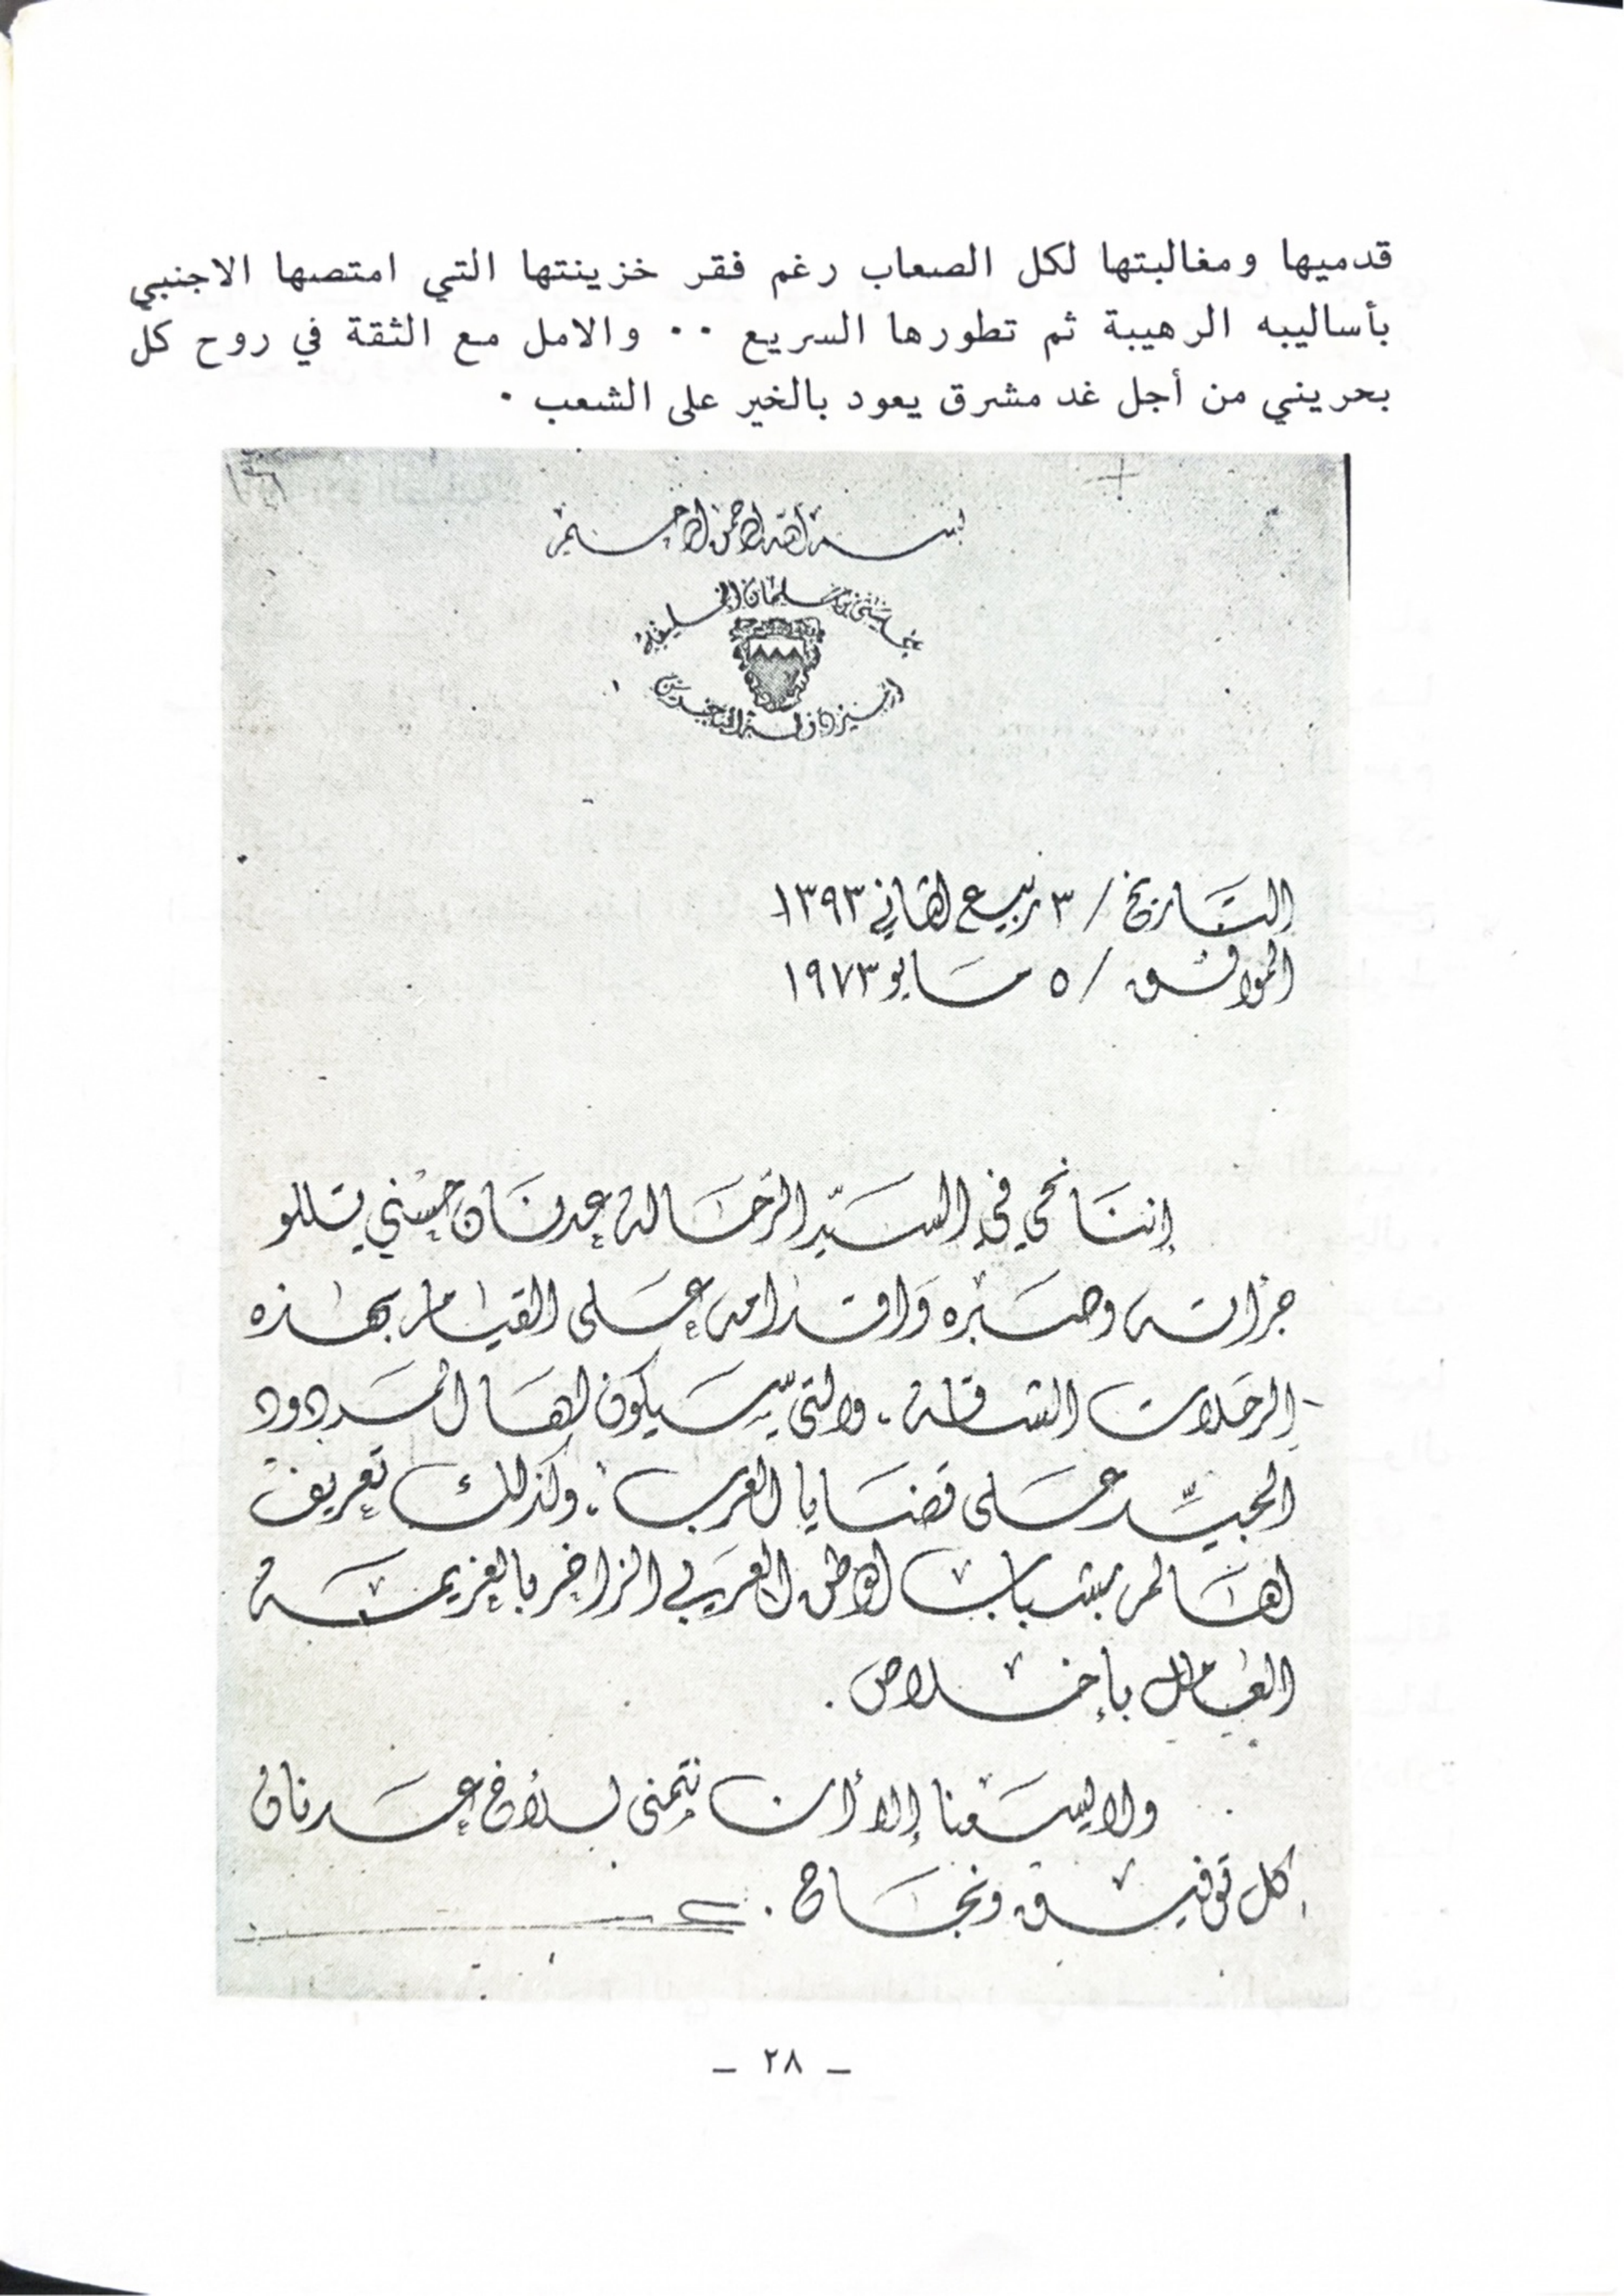 قدميها ومغالبتها لكل الصعاب رغم فقر خزينتها التي امتصها الاجنبي
بأساليبه الرهيبة ثم تطورها السريع ٠٠ والامل مع الثقة في روح كل
بحريني من أجل غد مشرق يعود بالخير على الشعب ٠
بسم الله الرحمن الرحيم
محمد بن سلمان الخليفة
التاريخ / ٣ ربيع الثاني ١٣٩٣
الموافق / ٥ مايو ١٩٧٣
إننا نحي في السيد الرحالة عدنان حسني تللو
جرأته وصبره واقدامه على القيام بهذه
الرحلات الشاقة ، والتي سيكون لها المردود
الجيد على قضايا العرب ، وكذلك تعريف
العالم بشباب الوطن العربي الزاخر بالعزيمة
العامل بإخلاص .
ولا يسعنا إلا أن نتمنى للأخ عدنان
كل توفيق ونجاح .
– ٢٨ –